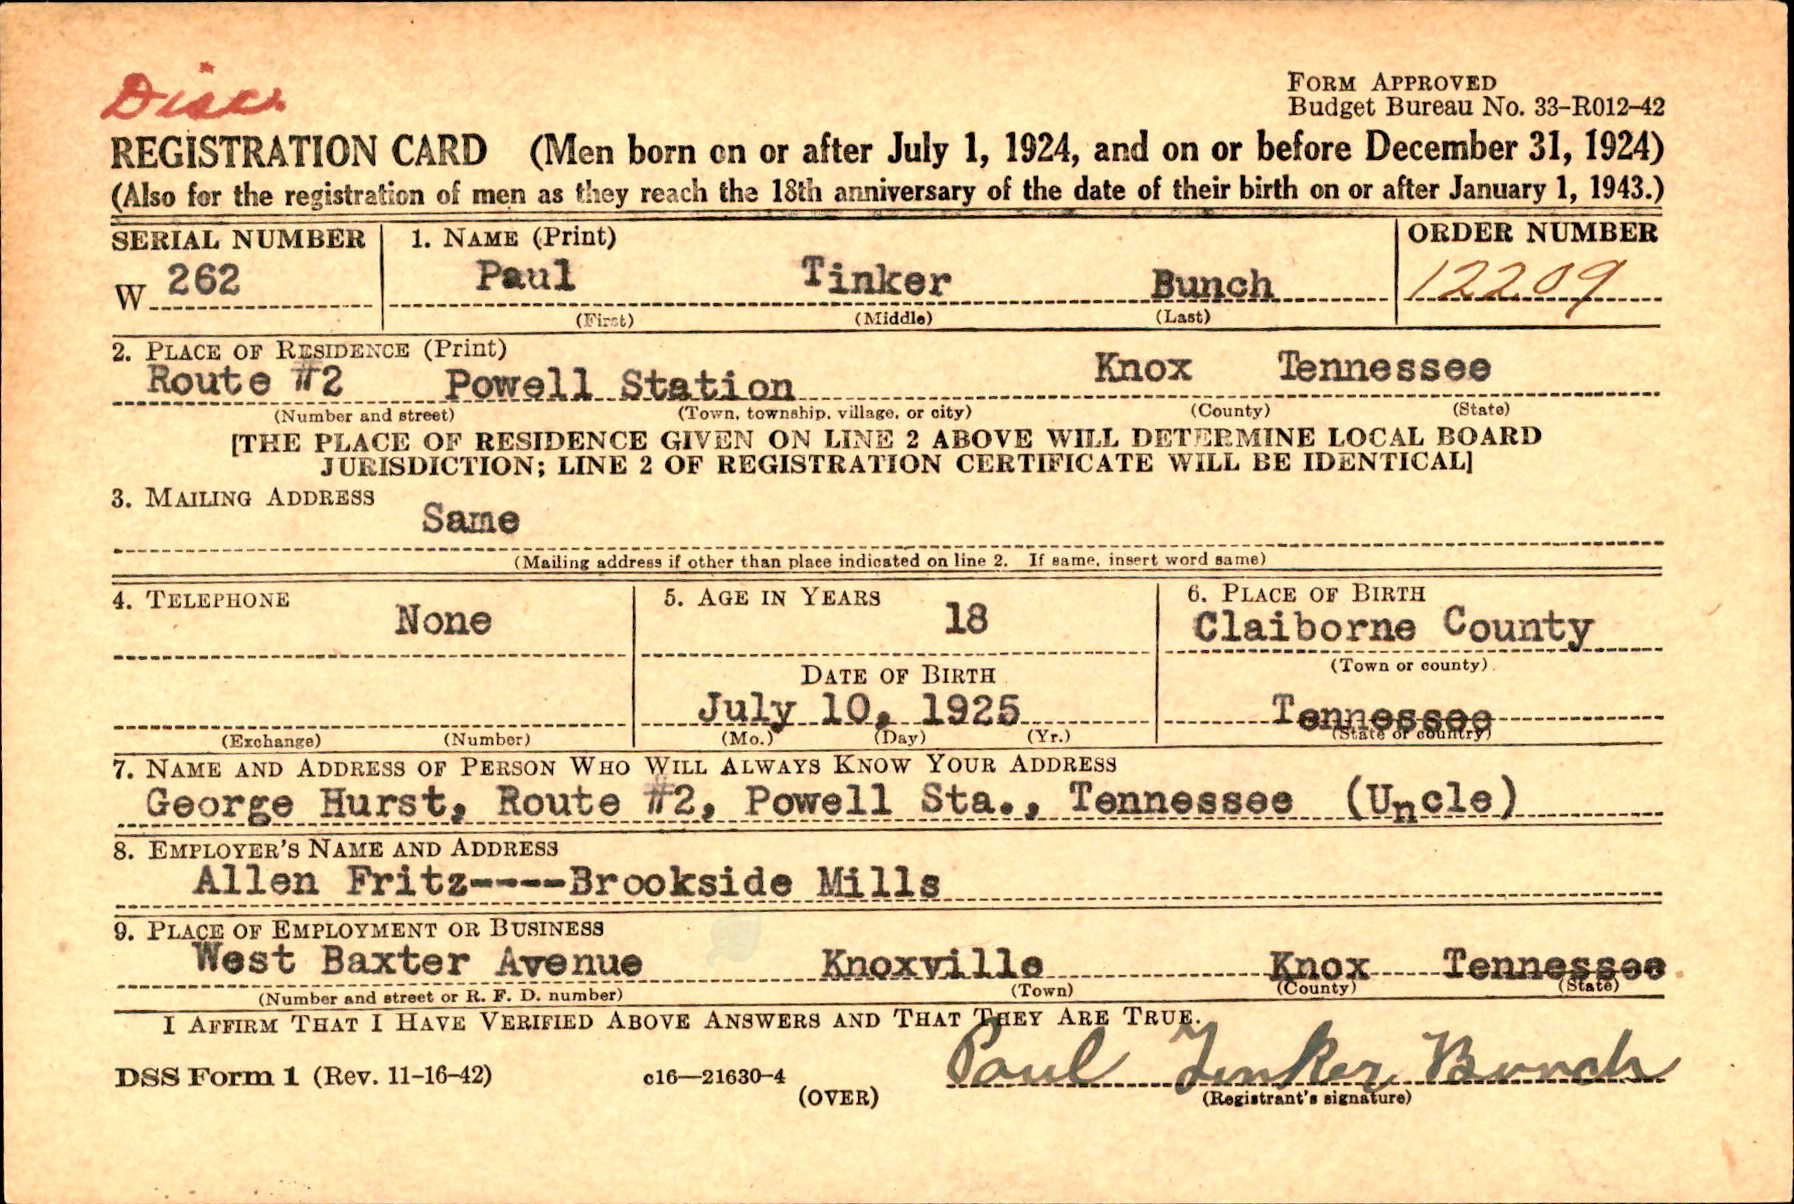 Disc.
FORM APPROVED
Budget Bureau No. 33-R012-42
REGISTRATION CARD (Men born on or after July 1, 1924, and on or before December 31, 1924)
(Also for the registration of men as they reach the 18th anniversary of the date of their birth on or after January 1, 1943.)
SERIAL NUMBER 1. NAME (Print) ORDER NUMBER
W 262 Paul Tinker Bunch 12209
(First) (Middle) (Last)
2. PLACE OF RESIDENCE (Print)
Route #2 Powell Station Knox Tennessee
(Number and street) (Town, township, village, or city) (County) (State)
[THE PLACE OF RESIDENCE GIVEN ON LINE 2 ABOVE WILL DETERMINE LOCAL BOARD
JURISDICTION; LINE 2 OF REGISTRATION CERTIFICATE WILL BE IDENTICAL]
3. MAILING ADDRESS
Same
(Mailing address if other than place indicated on line 2. If same, insert word same)
4. TELEPHONE 5. AGE IN YEARS 6. PLACE OF BIRTH
None 18 Claiborne County
(Town or county)
DATE OF BIRTH
July 10, 1925 Tennessee
(Exchange) (Number) (Mo.) (Day) (Yr.) (State or country)
7. NAME AND ADDRESS OF PERSON WHO WILL ALWAYS KNOW YOUR ADDRESS
George Hurst, Route #2, Powell Sta., Tennessee (Uncle)
8. EMPLOYER'S NAME AND ADDRESS
Allen Fritz----Brookside Mills
9. PLACE OF EMPLOYMENT OR BUSINESS
West Baxter Avenue Knoxville Knox Tennessee
(Number and street or R. F. D. number) (Town) (County) (State)
I AFFIRM THAT I HAVE VERIFIED ABOVE ANSWERS AND THAT THEY ARE TRUE.
DSS Form 1 (Rev. 11-16-42) c16—21630-4 Paul Tinker Bunch
(OVER) (Registrant's signature)